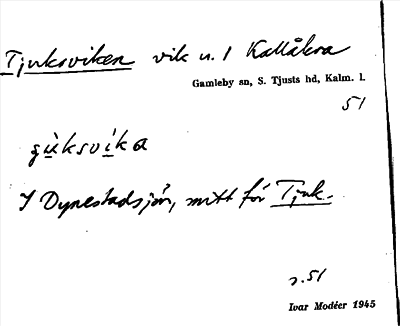 Tjuksviken vik u. / Kallåkra
Gamleby sn, S. Tjusts hd, Kalm. l.
51
I Dynestadsjön, mitt för Tjuk.
s. 51
Ivar Modéer 1945